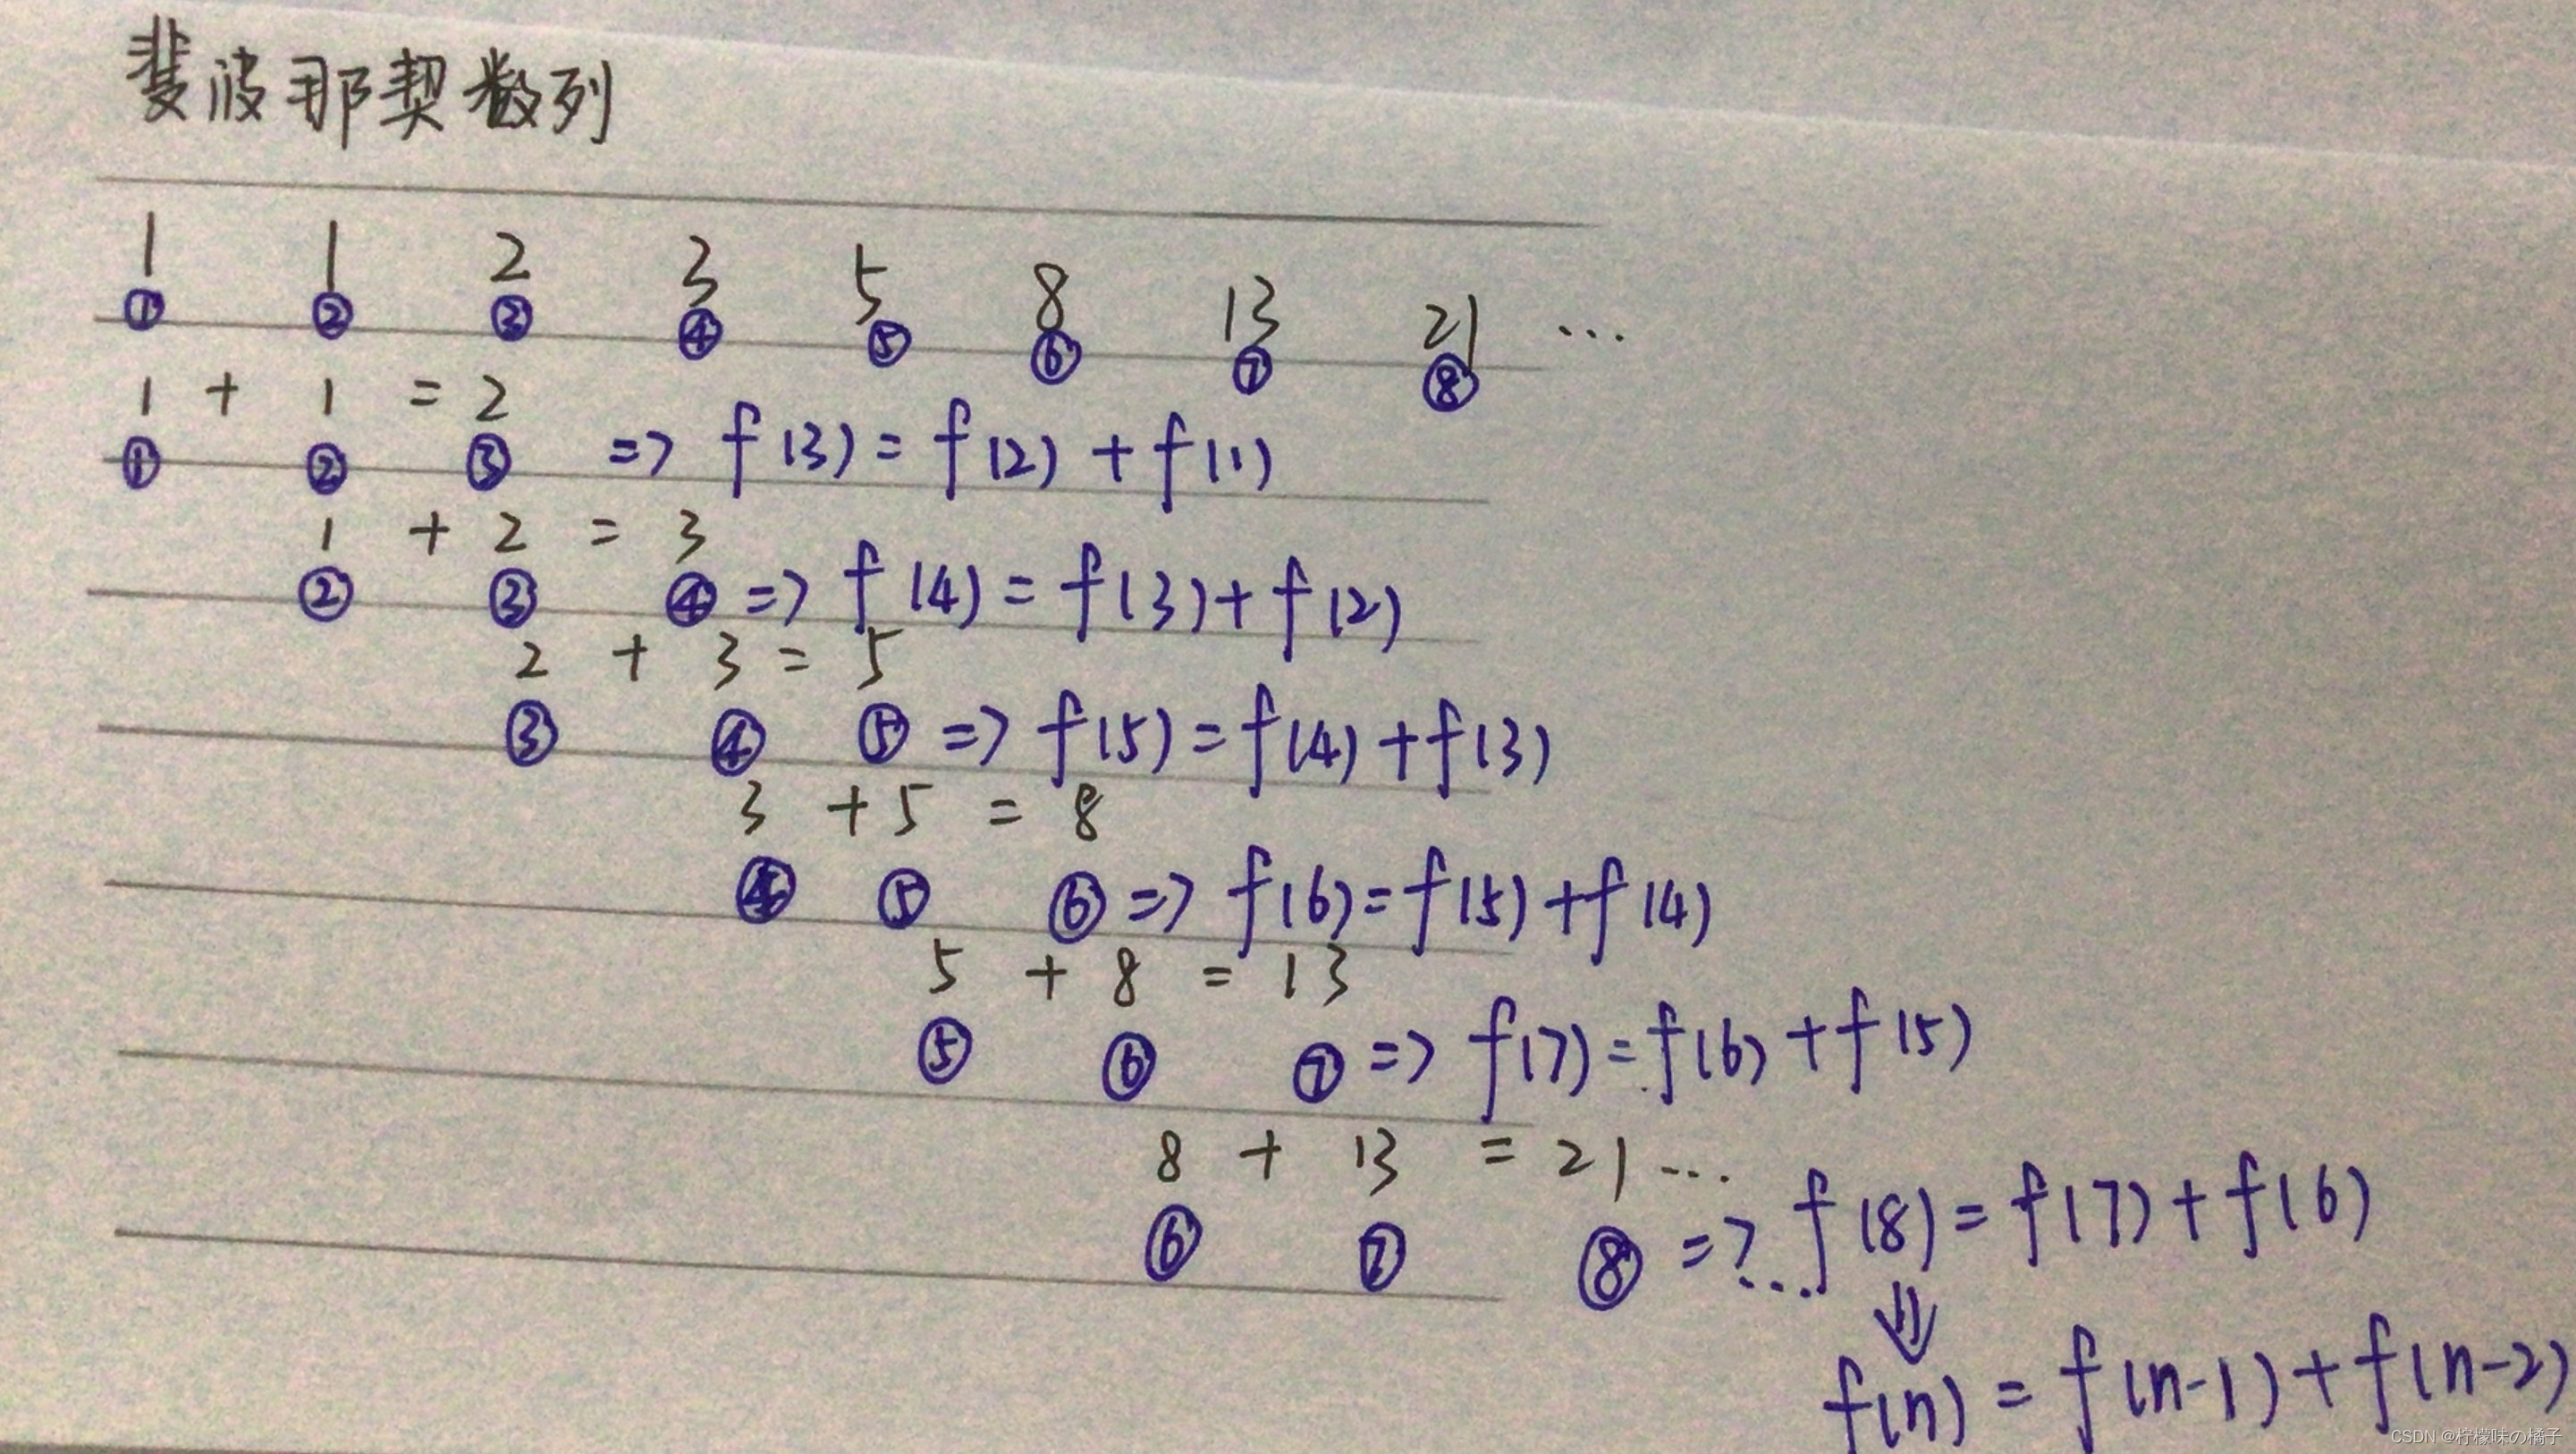 斐波那契数列
1 1 2 3 5 8 13 21 ...
① ② ③ ④ ⑤ ⑥ ⑦ ⑧
1 + 1 = 2
① ② ③ => f(3) = f(2) + f(1)
1 + 2 = 3
② ③ ④ => f(4) = f(3) + f(2)
2 + 3 = 5
③ ④ ⑤ => f(5) = f(4) + f(3)
3 + 5 = 8
④ ⑤ ⑥ => f(6) = f(5) + f(4)
5 + 8 = 13
⑤ ⑥ ⑦ => f(7) = f(6) + f(5)
8 + 13 = 21 ...
⑥ ⑦ ⑧ => ... f(8) = f(7) + f(6)
⇓
f(n) = f(n-1) + f(n-2)
CSDN @柠檬味の橘子